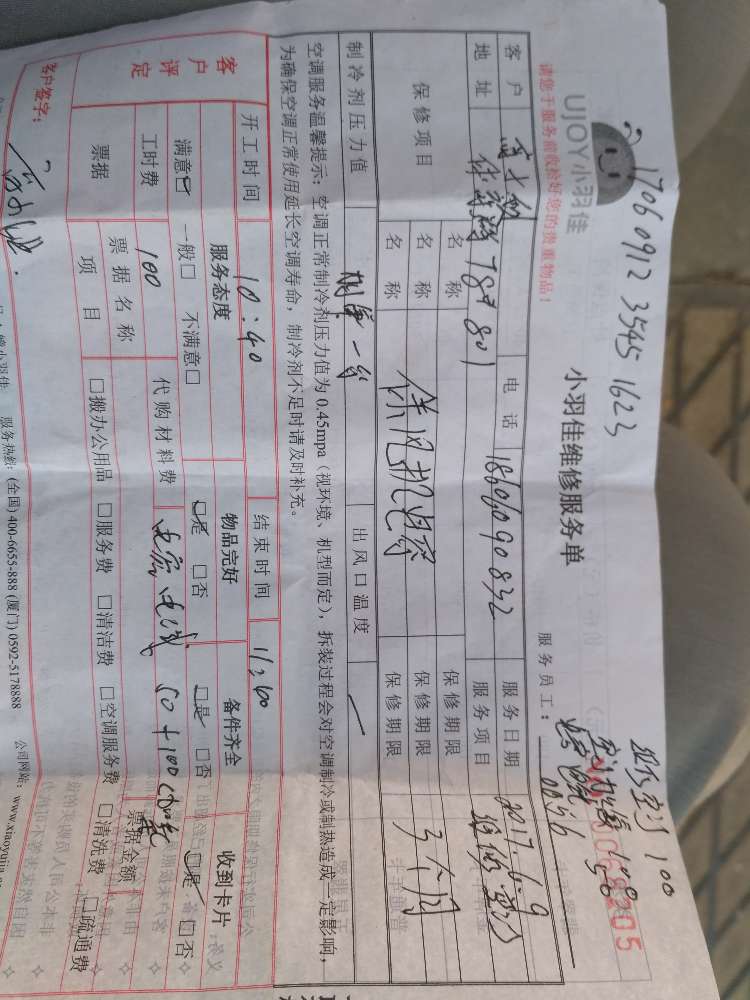 170609123545 1623
现欠空调 100
空调加氟 100
UJOY小羽佳
小羽佳维修服务单
服务员工：
0068205
请您于服务前收拾好您的贵重物品！
客户
电话 18606090832
服务日期 2017.6.9
地址
T8#801
服务项目 维修空调
保修项目
名称
保修期限
名称
保修期限 3个月
名称
保修期限
制冷剂压力值
出风口温度
空调服务温馨提示：空调正常制冷剂压力值为0.45mpa（视环境、机型而定），拆装过程会对空调制冷或制热造成一定影响，
为确保空调正常使用延长空调寿命，制冷剂不足时请及时补充。
开工时间 10:40
结束时间 11:60
客户评定
服务态度
物品完好
备件齐全
收到卡片
满意☑ 一般□ 不满意□
☑是 □否
☑是 □否
☑是 □否
工时费 100
代购材料费
50+100
票据
票据名称
票据金额
项目
□搬办公用品 □服务费 □清洁费 □空调服务费 □清洗费 □疏通费
客户签字：
服务热线：(全国) 400-6655-888 (厦门) 0592-5178888
公司网站：www.xiaoyujia